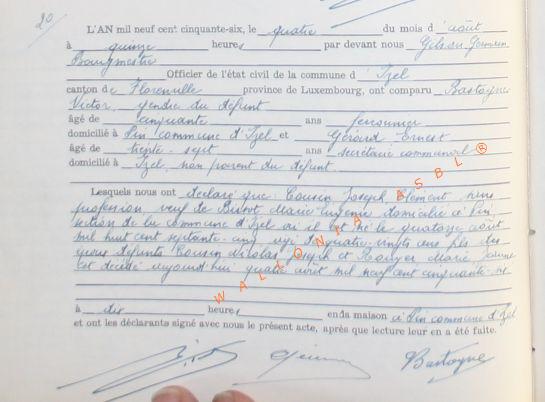 20
L'AN mil neuf cent cinquante-six, le quatre du mois d'août
à quinze heures par devant nous Gilson Germain
Bourgmestre
Officier de l'état civil de la commune d'Izel
canton de Florenville province de Luxembourg, ont comparu Bastogne
Victor, gendre du défunt
âgé de cinquante ans pensionné
domicilié à Pin commune d'Izel et Gérard, Ernest
âgé de trente-sept ans secrétaire communal
domicilié à Izel, non parent du défunt.
Lesquels nous ont déclaré que: Cousin, Joseph, Clément, sans
profession veuf de Marie Eugénie domicilié à Pin
section de la commune d'Izel où il est né le quatorze août
mil huit cent septante-cinq âgé de quatre-vingts ans fils des
époux défunts Cousin Nicolas Joseph et Marie Jeanne
est décédé aujourd'hui quatre août mil neuf cent cinquante-six
à dix heures en sa maison à Pin commune d'Izel
et ont les déclarants signé avec nous le présent acte, après que lecture leur en a été faite.
Bastogne
WALLONIA ASBL ®